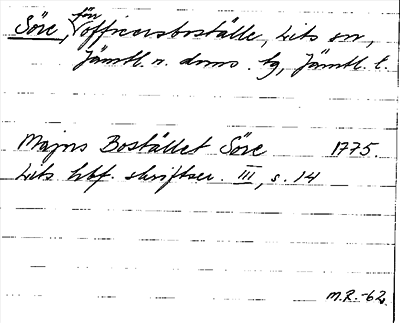 Söre, förv officersboställe, Lits sn,
Jämtl. n. doms. tg, Jämtl. l.
Majors Bostället Söre 1775.
Lits hbf. skriftser. III, s. 14
M.R.-62